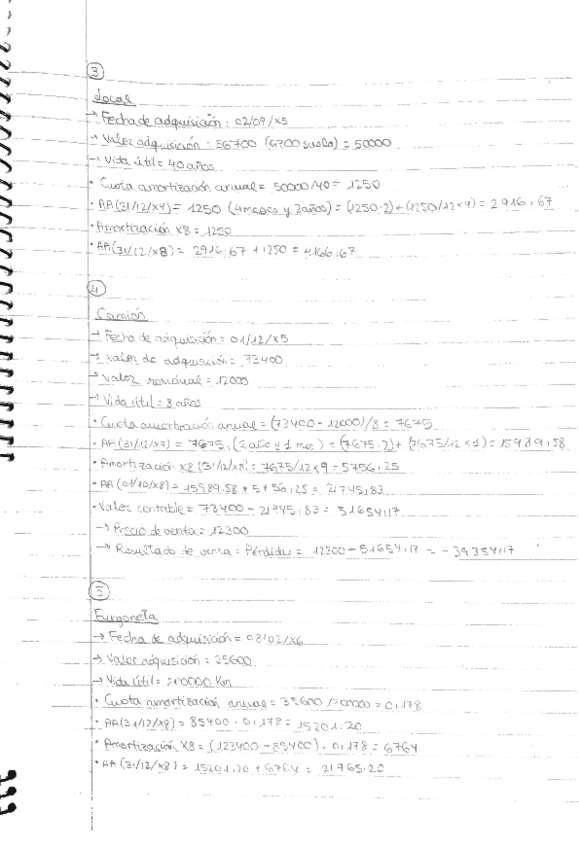 3
Local
→ Fecha de adquisición: 02/09/x5
→ Valor adquisición: 56700 (6700 suelo) = 50000
→ Vida útil = 40 años
• Cuota amortización anual = 50000/40 = 1250
• AA (31/12/x7) = 1250 (4 meses y 2 años) = (1250·2) + (1250/12 x 4) = 2916,67
• Amortización x8 = 1250
• AA (31/12/x8) = 2916,67 + 1250 = 4166,67
4
Camión
→ Fecha de adquisición = 01/12/x5
→ Valor de adquisición = 73400
→ Valor residual = 12000
→ Vida útil = 8 años
• Cuota amortización anual = (73400 - 12000)/8 = 7675
• AA (31/12/x7) = 7675 · (2 año y 1 mes) = (7675·2) + (7675/12 x 1) = 15989,58
• Amortización x8 (31/12/x8) = 7675/12 x 9 = 5756,25
• AA (01/10/x8) = 15989,58 + 5756,25 = 21745,83
• Valor contable = 73400 - 21745,83 = 51654,17
→ Precio de venta = 12300
→ Resultado de venta = Pérdidas = 12300 - 51654,17 = -39354,17
5
Furgoneta
→ Fecha de adquisición = 08/02/x6
→ Valor adquisición = 35600
→ Vida útil = 200000 Km
• Cuota amortización anual = 35600/200000 = 0,178
• AA (31/12/x8) = 85400 · 0,178 = 15201,20
• Amortización x8 = (123400 - 85400) · 0,178 = 6764
• AA (31/12/x8) = 15201,20 + 6764 = 21965,20